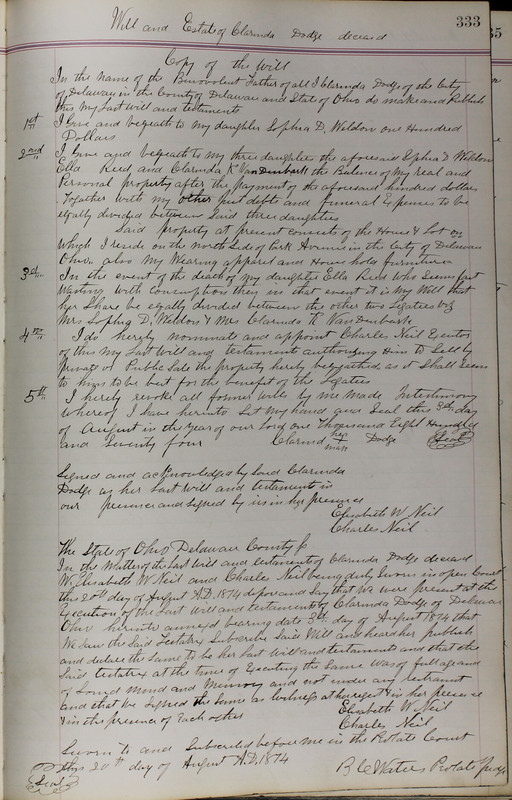 333
35
Will and Estate of Clarinda Dodge deceased
Copy of the Will
In the name of the Benevolent Father of all I Clarinda Dodge of the City
of Delaware in the County of Delaware and State of Ohio do make and Publish
this my Last Will and testament
1st I Give and bequeath to my daughter Sophia D, Weldon one Hundred
Dollars
2nd I Give and bequeath to my three daughters the aforesaid Sophia D Weldon
Ella Reed and Clarinda K VanDenbark the Balance of my real and
Personal property after the payment of the aforesaid hundred dollars
Together with my other just debts and funeral Expenses to be
eqally divided between Said three daughters
Said property at present consists of the House & Lot on
Which I reside on the north Side of Park Avenue in the City of Delaware
Ohio. also My Wearing apparel and House hold furniture
3d In the event of the death of my daughter Ella Reed who Seems fast
Wasting with consumption then in that event it is my Will that
her Share be eqally divided between the other two Legatees viz
Mrs Sophia D, Weldon & Mrs Clarinda K VanDenbark
4th I do hereby nominate and appoint Charles Neil Executor
of this my Last Will and testament authorizing Him to Sell by
Private or Public Sale the property hereby beqeathed as it Shall Seem
to him to be best for the benefit of the Legatees
5th I hereby revoke all former wills by me Made In testimony
whereof I have hereinto Set my hand and Seal this 3rd day
of August in the year of our Lord one Thousand Eight Hundred
and Seventy four Clarinda her mark Dodge Seal
Signed and acknowledged by Said Clarinda
Dodge as her Last Will and testament in
our presence and signed by us in her presence
Elizabeth W Neil
Charles Neil
The State of Ohio Delaware County ss
In the Matter of the Last Will and testament of Clarinda Dodge deceased
We, Elisabeth W Neil and Charles Neil being duly Sworn in open Court
this 20th day of August A.D. 1874 depose and Say that we were present at the
Execution of the Last Will and testament of Clarinda Dodge of Delaware
Ohio hereinto annexed bearing date 3d day of August 1874 that
We Saw the Said Testatrix Subscribe Said Will and heard her publish
and declare the Same to be her Last Will and testament and that the
Said testatrix at the time of Executing the Same was of full age and
of Sound Mind and Memory and not under any restraint
and that we Signed the Same as witness at her reqest & in her presence
& in the presence of Each other
Elizabeth W Neil
Charles Neil
Sworn to and Subscribed before me in the Probate Court
this 20th day of August A.D. 1874
Seal
B. C. Waters Probate Judge